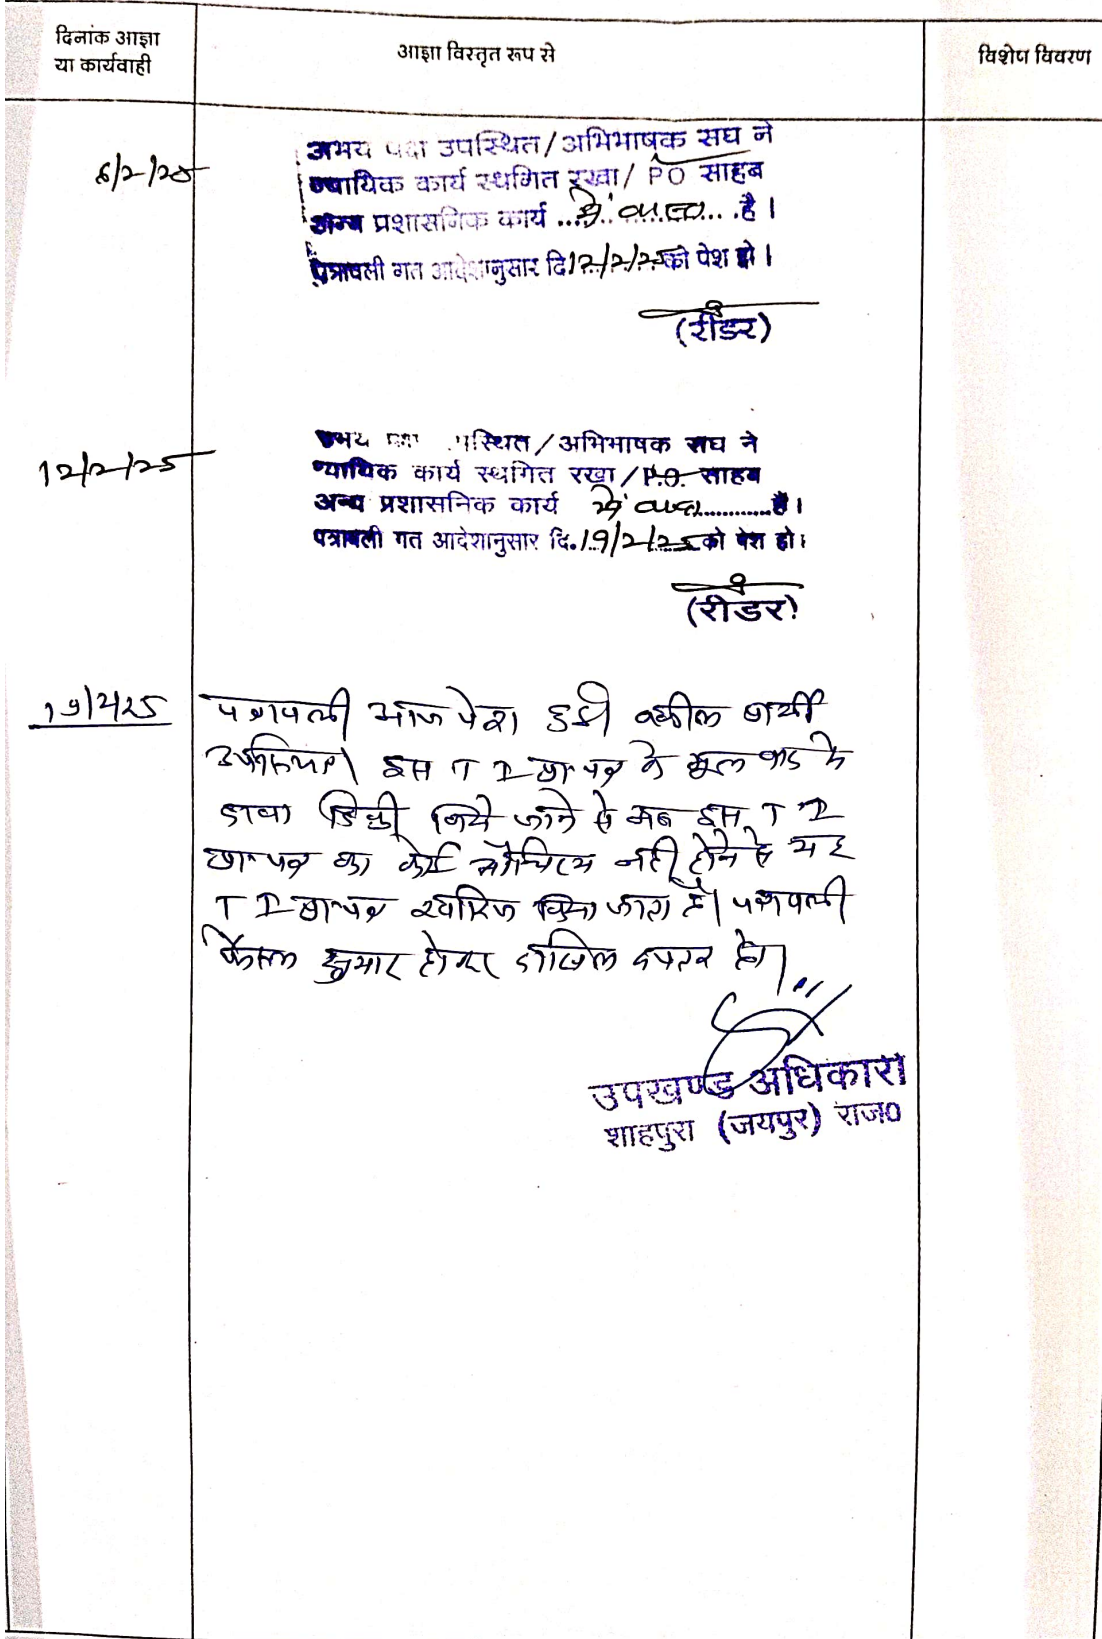 दिनांक आज्ञा
या कार्यवाही
आज्ञा विस्तृत रूप से
विशेष विवरण
6/2/25
उभय पक्ष उपस्थित/अभिभाषक संघ ने
न्यायिक कार्य स्थगित रखा/ PO साहब
अन्य प्रशासनिक कार्य ...में व्यस्त... है।
पत्रावली गत आदेशानुसार दि 12/2/25 को पेश हो।
(रीडर)
12/2/25
उभय पक्ष उपस्थित/अभिभाषक संघ ने
न्यायिक कार्य स्थगित रखा/P.O. साहब
अन्य प्रशासनिक कार्य में व्यस्त............है।
पत्रावली गत आदेशानुसार दि. 19/2/25 को पेश हो।
(रीडर)
19/2/25
पत्रावली आज पेश हुई। वकील प्रार्थी
उपस्थित। इस T I प्रा० पत्र के मूल वाद के
दावा डिक्री किये जाने से अब इस T I
प्रा० पत्र का कोई औचित्य नहीं होने से यह
T I प्रा० पत्र खारिज किया जाता है। पत्रावली
फैसल शुमार होकर दाखिल दफ्तर हो।
उपखण्ड अधिकारी
शाहपुरा (जयपुर) राज०